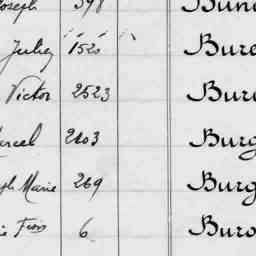 Joseph 398 Bun
Juliez 1520 Bure
Victor 2523 Bure
Marcel 2103 Burg
Joseph Marie 269 Burg
6 Buro